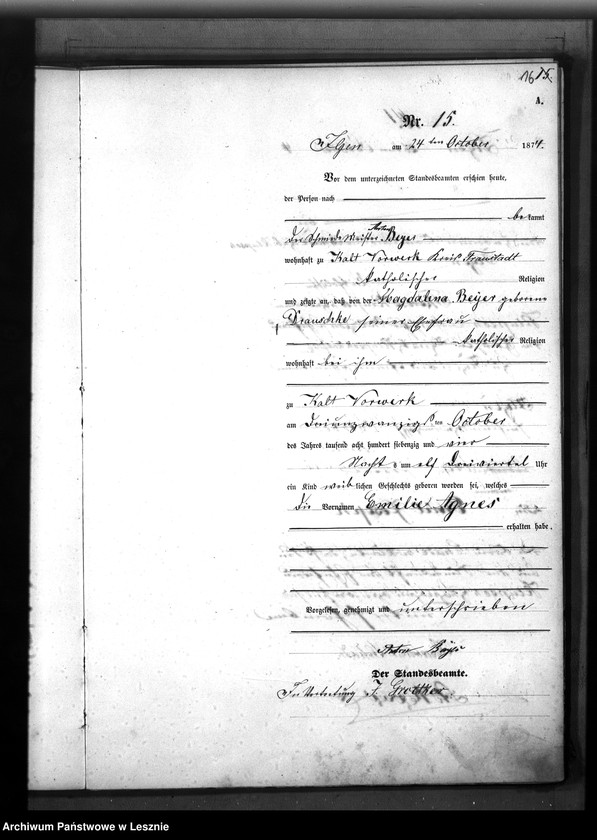 16 15.
A.
Nr. 15.
Ilgen am 24ten October 1874.
Vor dem unterzeichneten Standesbeamten erschien heute,
der Person nach
bekannt
der Schmiede Meister Anton Beyer
wohnhaft zu Kalt Vorwerk Kreis Fraustadt
katholischer Religion
und zeigte an, daß von der Magdalena Beyer geborene
Drauschke seiner Ehefrau
katholischer Religion
wohnhaft bei ihm
zu Kalt Vorwerk
am Dreiunzwanzigsten October
des Jahres tausend acht hundert siebenzig und vier
Nacht um elf Dreiviertel Uhr
ein Kind weiblichen Geschlechts geboren worden sei, welches
die Vornamen Emilie Agnes
erhalten habe.
Vorgelesen, genehmigt und unterschrieben
Anton
Der Standesbeamte.
In Vertretung
Archiwum Państwowe w Lesznie